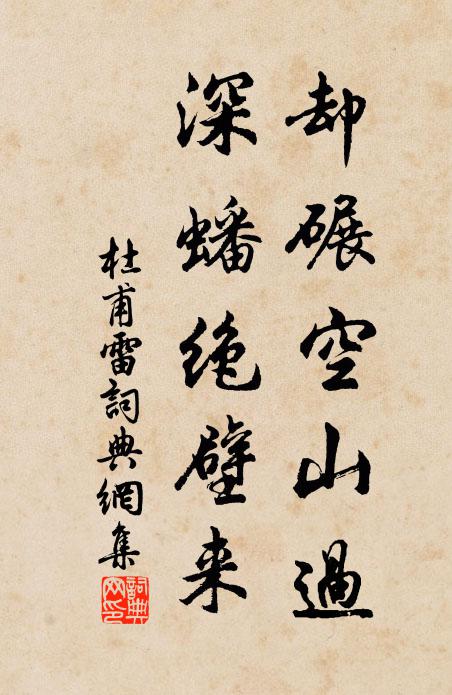 却碾空山過
深蟠绝壁来
杜甫雷詞典網集
詞典網印